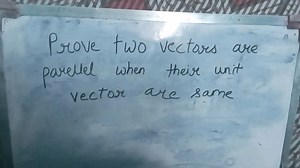 Prove two vectors are
parellel when their unit
vector are same